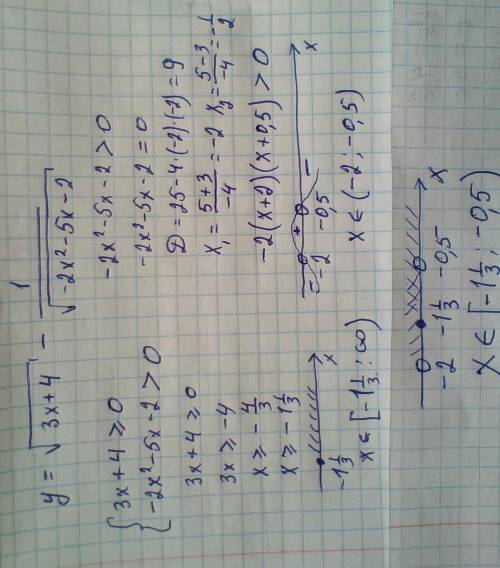 y = √(3x+4) − 1/√(-2x²-5x-2)
{ 3x+4 ≥ 0
-2x²-5x-2 > 0
3x+4 ≥ 0
3x ≥ -4
x ≥ -4/3
x ≥ -1 1/3
-1 1/3 x
x ∈ [-1 1/3 ; ∞)
-2x²-5x-2 > 0
-2x²-5x-2 = 0
D = 25-4·(-2)·(-2) = 9
x₁ = (5+3)/-4 = -2 x₂ = (5-3)/-4 = -1/2
-2(x+2)(x+0,5) > 0
− + −
-2 -0,5 x
x ∈ (-2 ; -0,5)
-2 -1 1/3 -0,5 x
x ∈ [-1 1/3 ; -0,5)